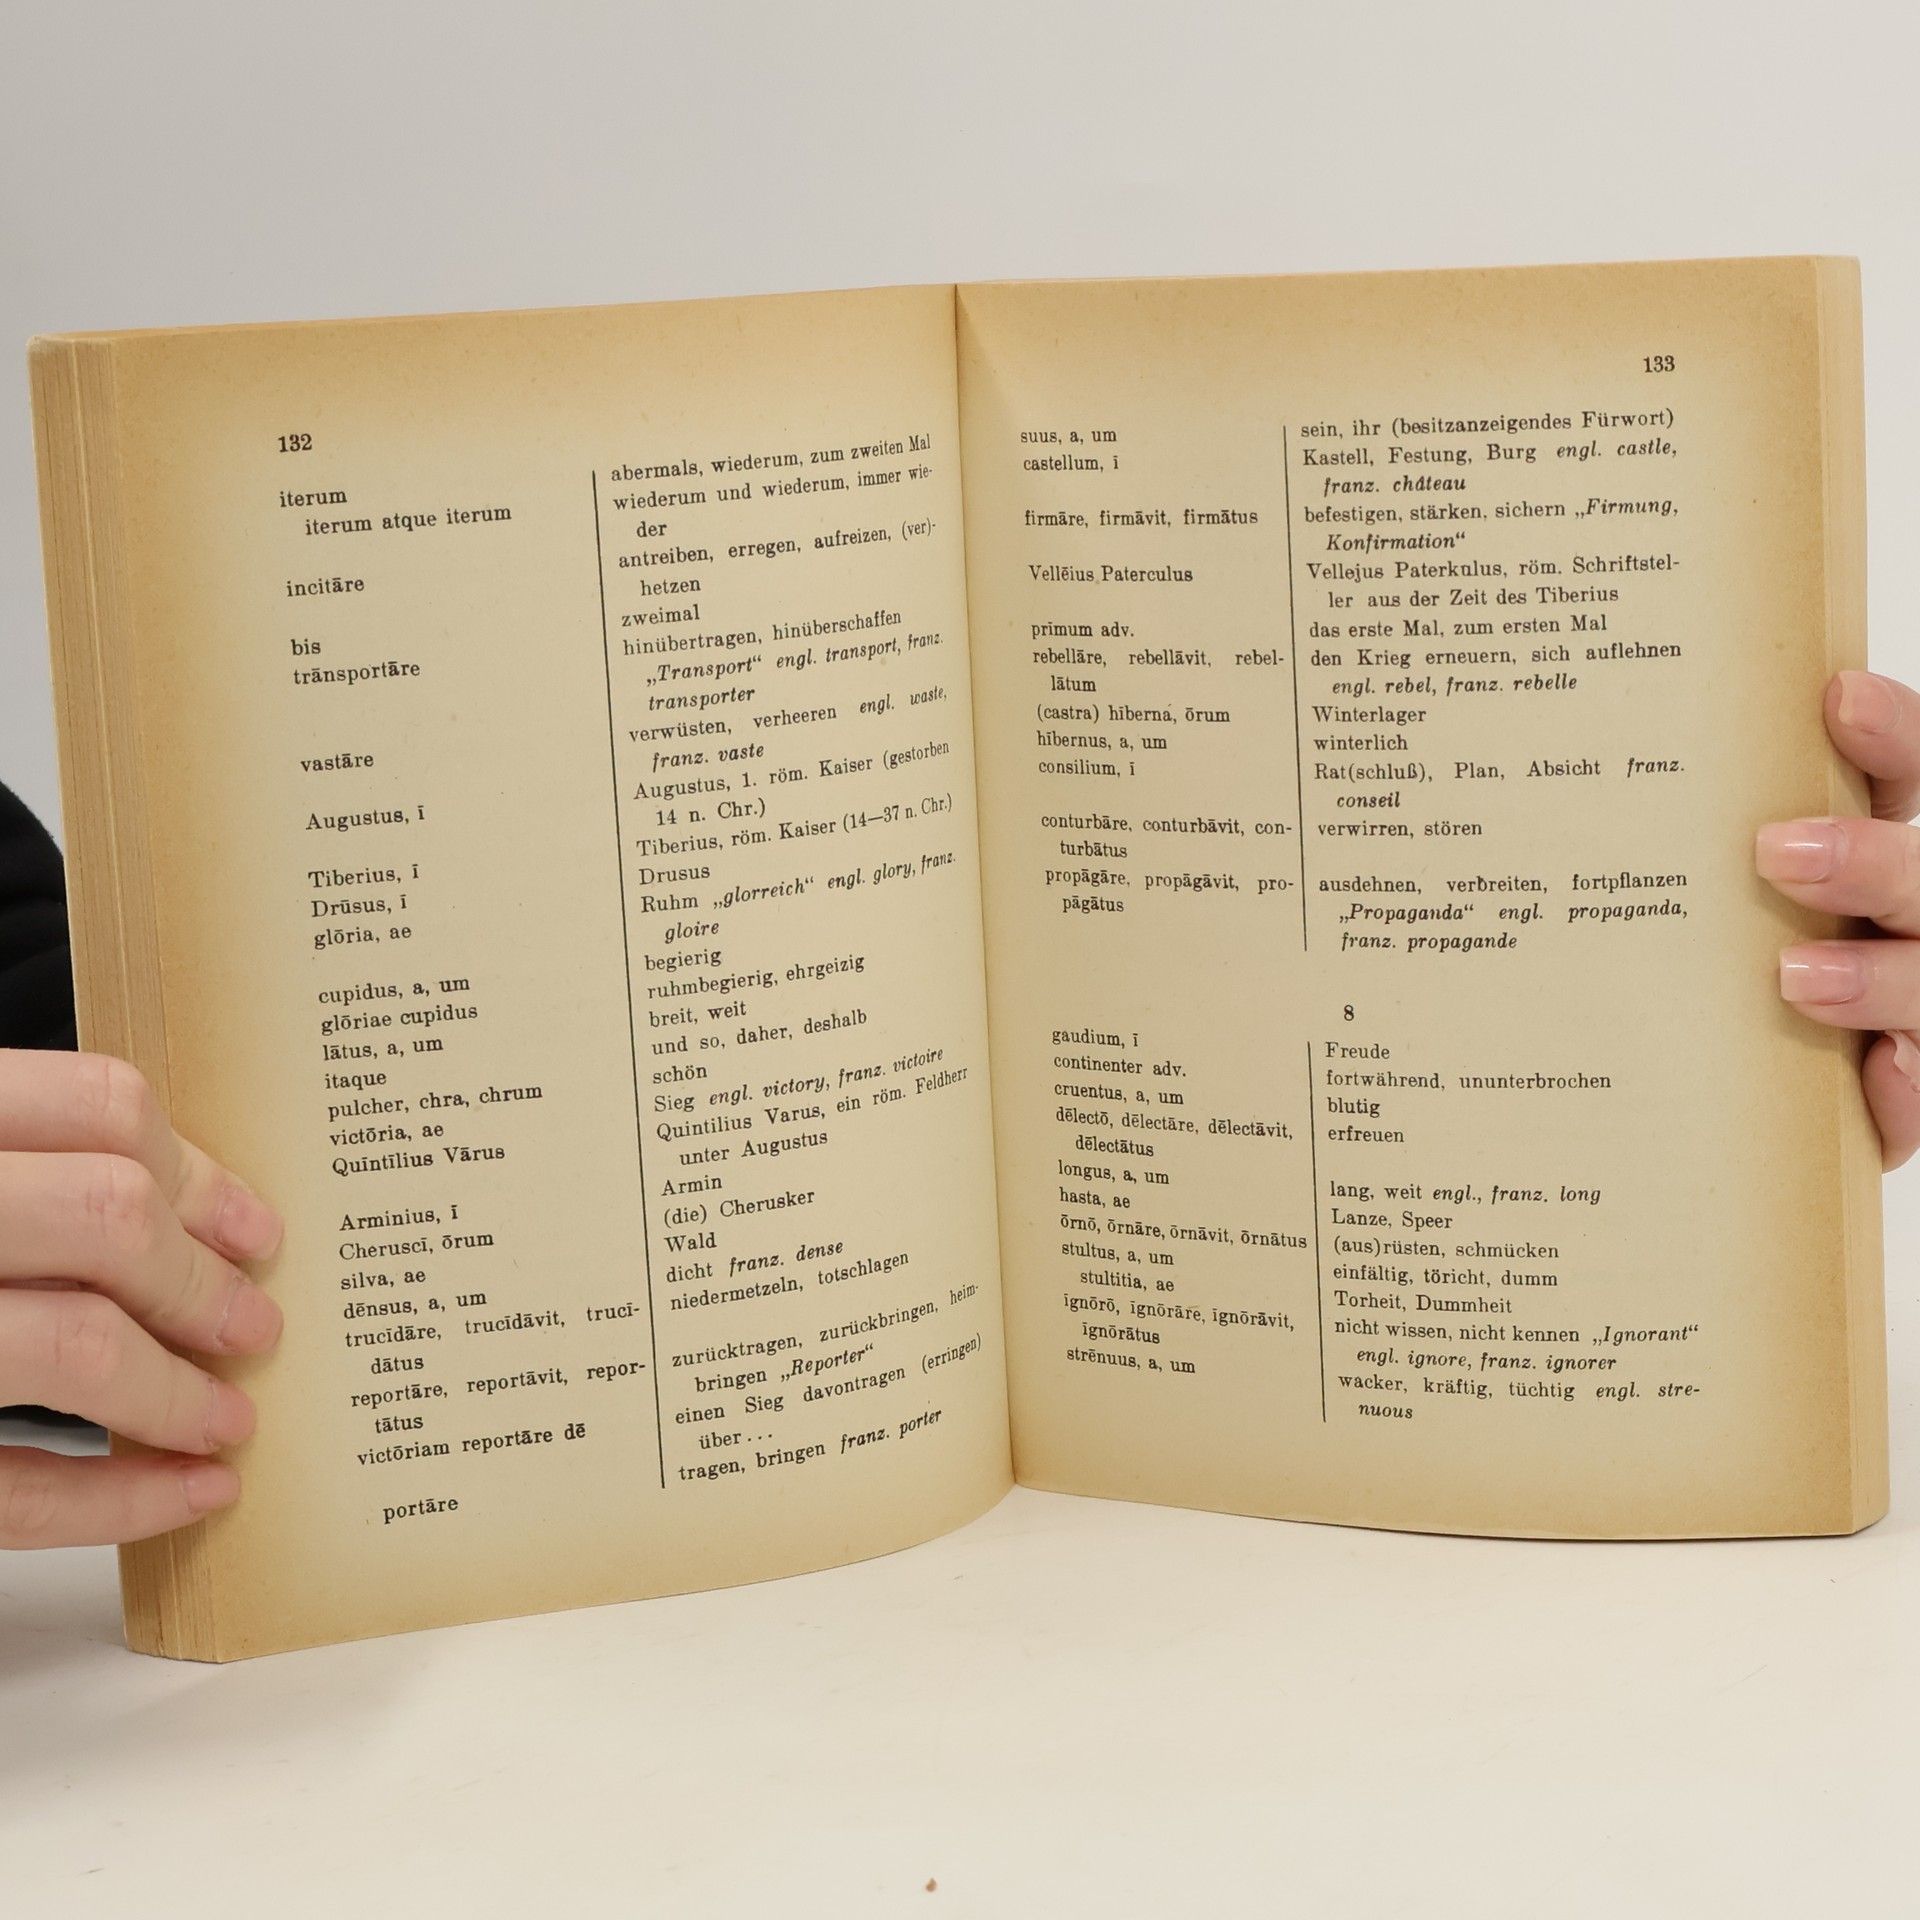 132
iterum
iterum atque iterum
incitāre
bis
trānsportāre
vastāre
Augustus, ī
Tiberius, ī
Drūsus, ī
glōria, ae
cupidus, a, um
glōriae cupidus
lātus, a, um
itaque
pulcher, chra, chrum
victōria, ae
Quīntīlius Vārus
Arminius, ī
Cheruscī, ōrum
silva, ae
dēnsus, a, um
trucīdāre, trucīdāvit, trucī-
dātus
reportāre, reportāvit, repor-
tātus
victōriam reportāre dē
portāre
abermals, wiederum, zum zweiten Mal
wiederum und wiederum, immer wie-
der
antreiben, erregen, aufreizen, (ver)-
hetzen
zweimal
hinübertragen, hinüberschaffen
„Transport“ engl. transport, franz.
transporter
verwüsten, verheeren engl. waste,
franz. vaste
Augustus, 1. röm. Kaiser (gestorben
14 n. Chr.)
Tiberius, röm. Kaiser (14—37 n. Chr.)
Drusus
Ruhm „glorreich“ engl. glory, franz.
gloire
begierig
ruhmbegierig, ehrgeizig
breit, weit
und so, daher, deshalb
schön
Sieg engl. victory, franz. victoire
Quintilius Varus, ein röm. Feldherr
unter Augustus
Armin
(die) Cherusker
Wald
dicht franz. dense
niedermetzeln, totschlagen
zurücktragen, zurückbringen, heim-
bringen „Reporter“
einen Sieg davontragen (erringen)
über...
tragen, bringen franz. porter
133
suus, a, um
castellum, ī
firmāre, firmāvit, firmātus
Vellēius Paterculus
prīmum adv.
rebellāre, rebellāvit, rebel-
lātum
(castra) hīberna, ōrum
hībernus, a, um
consilium, ī
conturbāre, conturbāvit, con-
turbātus
propāgāre, propāgāvit, pro-
pāgātus
sein, ihr (besitzanzeigendes Fürwort)
Kastell, Festung, Burg engl. castle,
franz. château
befestigen, stärken, sichern „Firmung,
Konfirmation“
Vellejus Paterkulus, röm. Schriftstel-
ler aus der Zeit des Tiberius
das erste Mal, zum ersten Mal
den Krieg erneuern, sich auflehnen
engl. rebel, franz. rebelle
Winterlager
winterlich
Rat(schluß), Plan, Absicht franz.
conseil
verwirren, stören
ausdehnen, verbreiten, fortpflanzen
„Propaganda“ engl. propaganda,
franz. propagande
8
gaudium, ī
continenter adv.
cruentus, a, um
dēlectō, dēlectāre, dēlectāvit,
dēlectātus
longus, a, um
hasta, ae
ōrnō, ōrnāre, ōrnāvit, ōrnātus
stultus, a, um
stultitia, ae
īgnōrō, īgnōrāre, īgnōrāvit,
īgnōrātus
strēnuus, a, um
Freude
fortwährend, ununterbrochen
blutig
erfreuen
lang, weit engl., franz. long
Lanze, Speer
(aus)rüsten, schmücken
einfältig, töricht, dumm
Torheit, Dummheit
nicht wissen, nicht kennen „Ignorant“
engl. ignore, franz. ignorer
wacker, kräftig, tüchtig engl. stre-
nuous